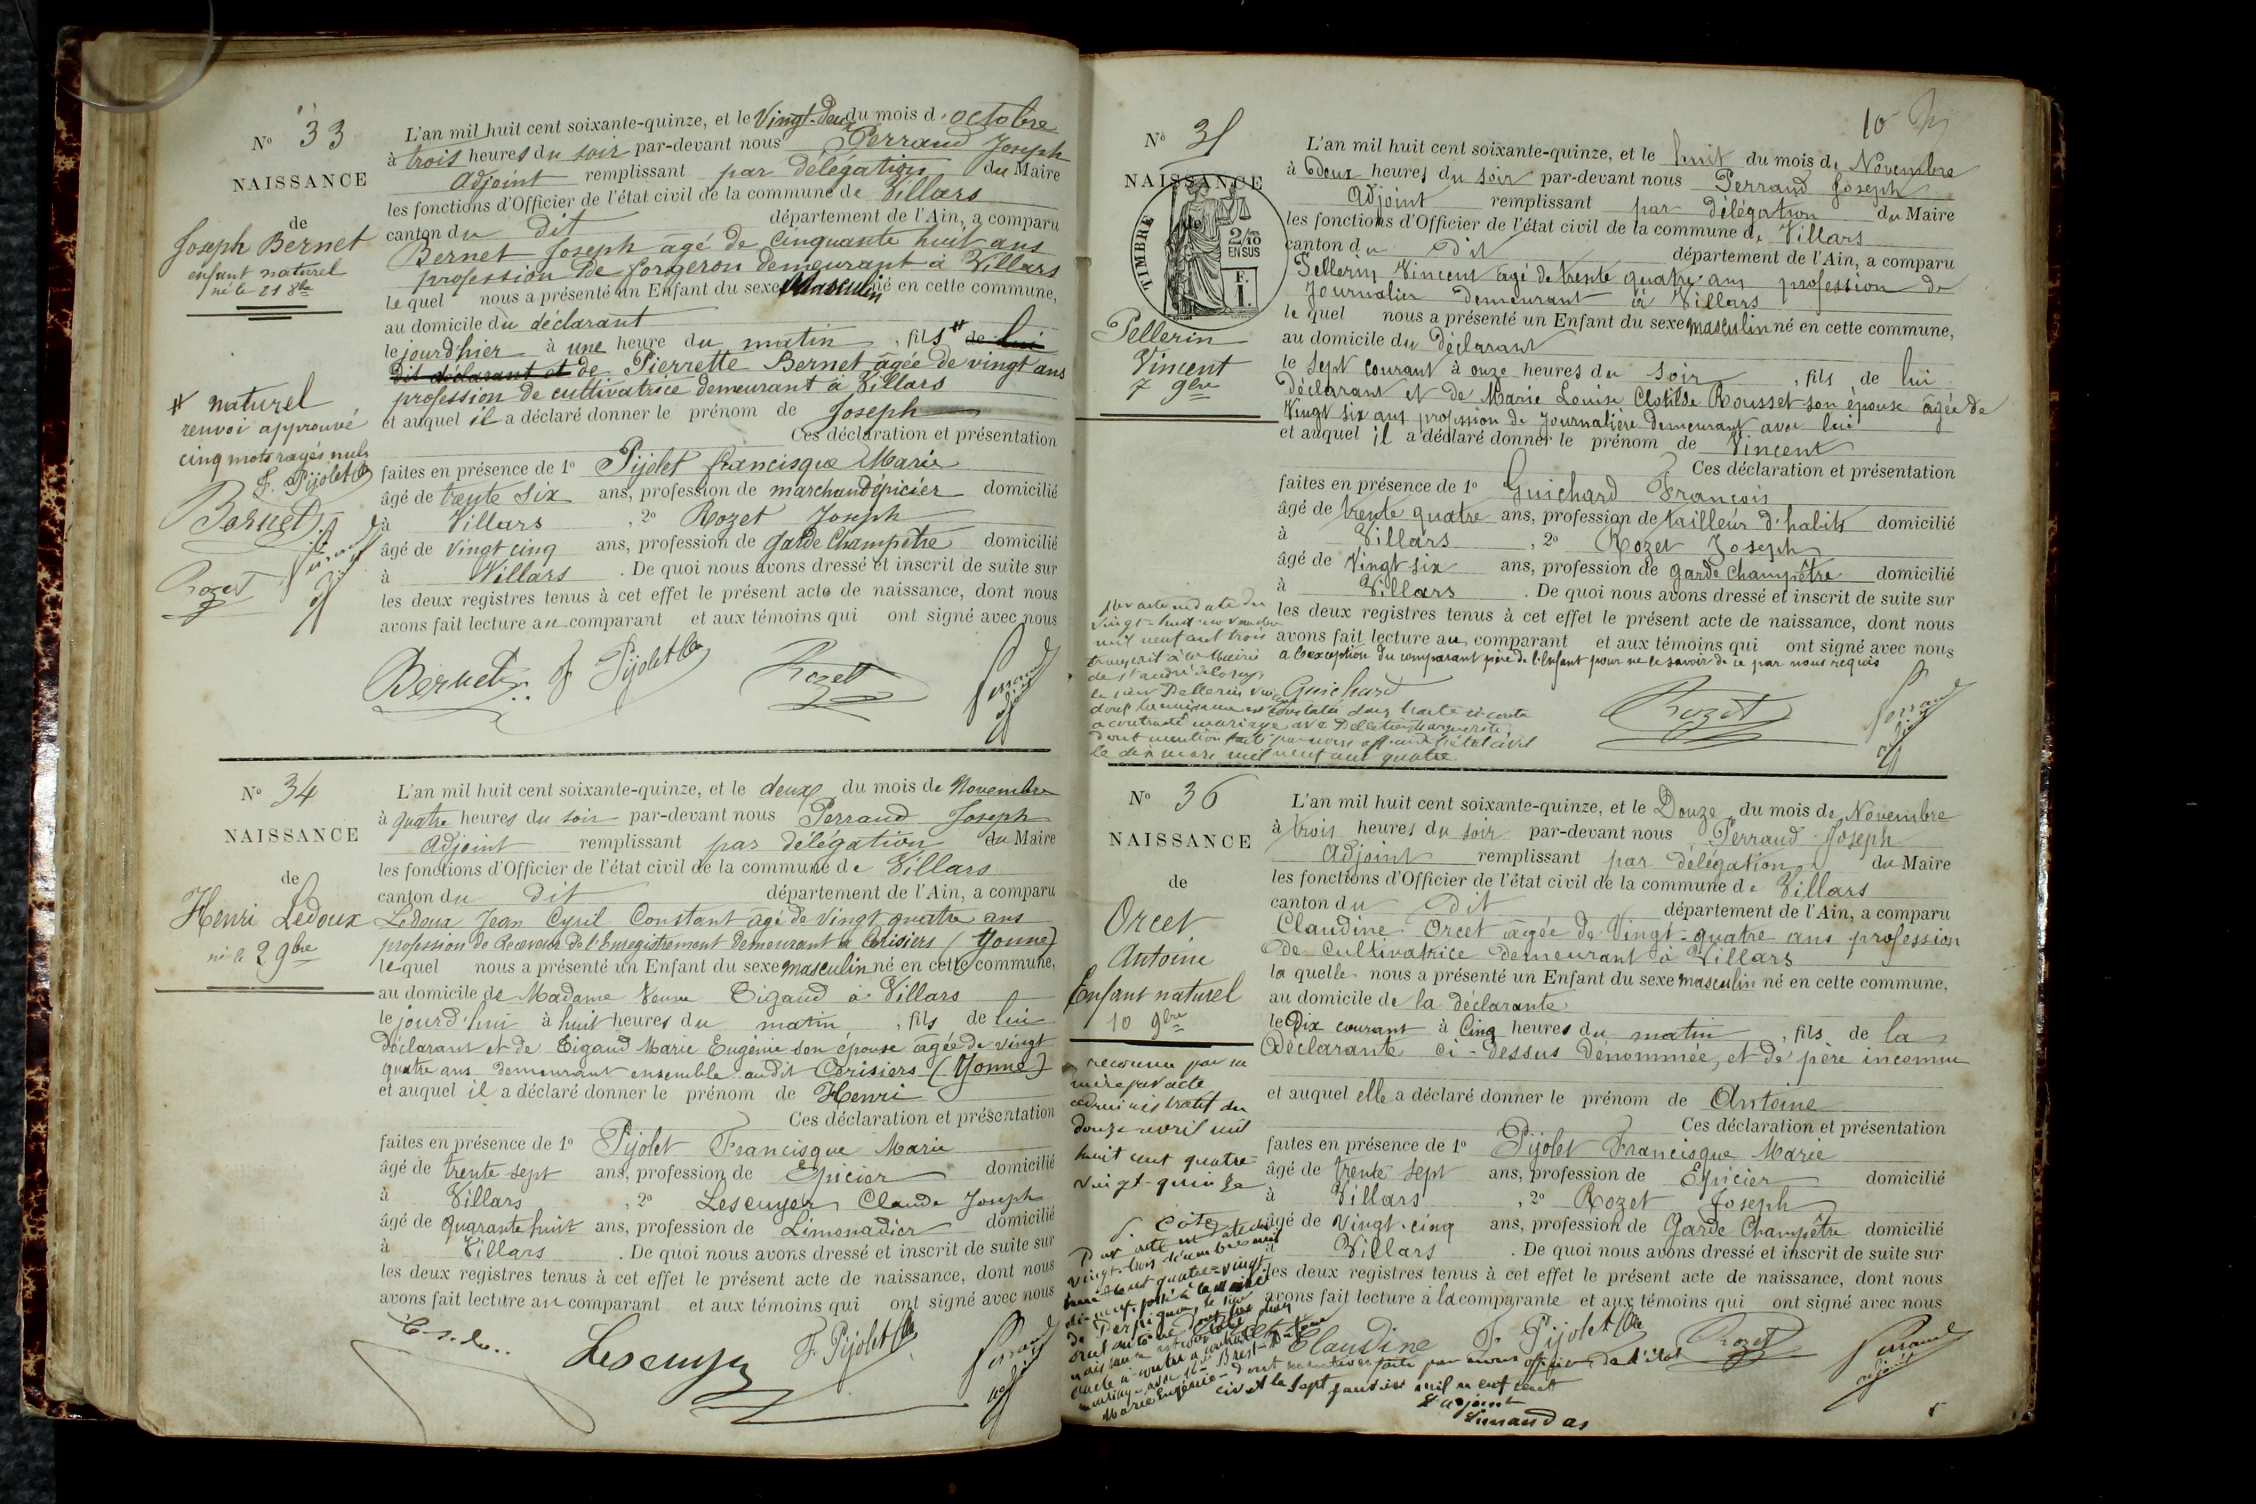 N° 33
NAISSANCE
de
Joseph Bernet
enfant naturel
né le 21 8bre
# naturel
renvoi approuvé
cinq mots rayés nuls
F. Pijolet
Bernet
Rozet
L'an mil huit cent soixante-quinze, et le Vingt-deux du mois d'octobre
à trois heures du soir par-devant nous Perraud Joseph
Adjoint remplissant par délégation du Maire
les fonctions d'Officier de l'état civil de la commune de Villars
canton du dit département de l'Ain, a comparu
Bernet Joseph âgé de Cinquante huit ans
profession de forgeron demeurant à Villars
le quel nous a présenté un Enfant du sexe Masculin né en cette commune,
au domicile du déclarant
le jourd'hier à une heure du matin, fils # de lui
dit déclarant et de Pierrette Bernet âgée de vingt ans
profession de cultivatrice demeurant à Villars
et auquel il a déclaré donner le prénom de Joseph
Ces déclaration et présentation
faites en présence de 1° Pijolet francisque Marie
âgé de trente six ans, profession de marchand épicier domicilié
à Villars, 2° Rozet Joseph
âgé de vingt cinq ans, profession de garde Champêtre domicilié
à Villars. De quoi nous avons dressé et inscrit de suite sur
les deux registres tenus à cet effet le présent acte de naissance, dont nous
avons fait lecture au comparant et aux témoins qui ont signé avec nous
Bernet F. Pijolet Rozet Perraud
N° 34
NAISSANCE
de
Henri Ledoux
né le 2 9bre
L'an mil huit cent soixante-quinze, et le deux du mois de Novembre
à quatre heures du soir par-devant nous Perraud Joseph
Adjoint remplissant par délégation du Maire
les fonctions d'Officier de l'état civil de la commune de Villars
canton du dit département de l'Ain, a comparu
Ledoux Jean Cyril Constant âgé de Vingt quatre ans
profession de Receveur de l'Enregistrement demeurant à Cerisiers (Yonne)
le quel nous a présenté un Enfant du sexe masculin né en cette commune,
au domicile de Madame Veuve Tigaud à Villars
le jourd'hui à huit heures du matin, fils de lui
déclarant et de Tigaud Marie Eugénie son épouse âgée de vingt
quatre ans demeurant ensemble audit Cerisiers (Yonne)
et auquel il a déclaré donner le prénom de Henri
Ces déclaration et présentation
faites en présence de 1° Pijolet Francisque Marie
âgé de trente sept ans, profession de Epicier domicilié
à Villars, 2° Lescuyer Claude Joseph
âgé de quarante huit ans, profession de Limonadier domicilié
à Villars. De quoi nous avons dressé et inscrit de suite sur
les deux registres tenus à cet effet le présent acte de naissance, dont nous
avons fait lecture au comparant et aux témoins qui ont signé avec nous
Lescuyer F. Pijolet Perraud
10
N° 35
NAISSANCE
de
TIMBRE
2/10
EN SUS
F.
1.
Pellerin
Vincent
7 9bre
L'an mil huit cent soixante-quinze, et le huit du mois de Novembre
à Deux heures du soir par-devant nous Perraud Joseph
Adjoint remplissant par délégation du Maire
les fonctions d'Officier de l'état civil de la commune de Villars
canton du dit département de l'Ain, a comparu
Pellerin Vincent âgé de trente quatre ans profession de
Journalier demeurant à Villars
le quel nous a présenté un Enfant du sexe masculin né en cette commune,
au domicile du déclarant
le sept courant à onze heures du soir, fils de lui
déclarant et de Marie Louise Clotilde Rousset son épouse âgée de
Vingt six ans profession de Journalière demeurant avec lui
et auquel il a déclaré donner le prénom de Vincent
Ces déclaration et présentation
faites en présence de 1° Guichard François
âgé de trente quatre ans, profession de tailleur d'habits domicilié
à Villars, 2° Rozet Joseph
âgé de Vingt six ans, profession de garde champêtre domicilié
à Villars. De quoi nous avons dressé et inscrit de suite sur
les deux registres tenus à cet effet le présent acte de naissance, dont nous
avons fait lecture au comparant et aux témoins qui ont signé avec nous
a l'exception du comparant père de l'enfant pour ne le savoir de ce par nous requis
Guichard Rozet Perraud
Par acte en date du
vingt-huit novembre
mil neuf cent trois
transcrit à la Mairie
de St andré de Corcy,
le sieur Pellerin Vincent
dont la naissance est constatée dans l'acte ci-contre
a contracté mariage avec
dont mention faite par nous officier de l'état civil
le dix mars mil neuf cent quatre
N° 36
NAISSANCE
de
Orcet
Antoine
Enfant naturel
10 9bre
reconnu par sa
mère par acte
administratif du
douze avril mil
huit cent quatre-
vingt-quinze
L'an mil huit cent soixante-quinze, et le Douze du mois de Novembre
à trois heures du soir par-devant nous Perraud Joseph
Adjoint remplissant par délégation du Maire
les fonctions d'Officier de l'état civil de la commune de Villars
canton du dit département de l'Ain, a comparu
Claudine Orcet âgée de Vingt-quatre ans profession
de Cultivatrice demeurant à Villars
la quelle nous a présenté un Enfant du sexe masculin né en cette commune,
au domicile de la déclarante
le Dix courant à Cinq heures du matin, fils de la
Déclarante ci-dessus dénommée, et de père inconnu
et auquel elle a déclaré donner le prénom de Antoine
Ces déclaration et présentation
faites en présence de 1° Pijolet Francisque Marie
âgé de trente sept ans, profession de Epicier domicilié
à Villars, 2° Rozet Joseph
âgé de vingt-cinq ans, profession de Garde Champêtre domicilié
à Villars. De quoi nous avons dressé et inscrit de suite sur
les deux registres tenus à cet effet le présent acte de naissance, dont nous
avons fait lecture à la comparante et aux témoins qui ont signé avec nous
Claudine F. Pijolet Rozet Perraud
adjoint
Par acte en date du
vingt-trois décembre mil
huit cent quatre-vingt
dix-neuf, passé à la mairie
de Perpignan, le sieur
Orcet antoine dont la
naissance est constatée
a contracté
mariage avec
Marie Eugénie - dont mention faite par nous officier de l'état
civil le sept janvier mil neuf cent
L'adjoint